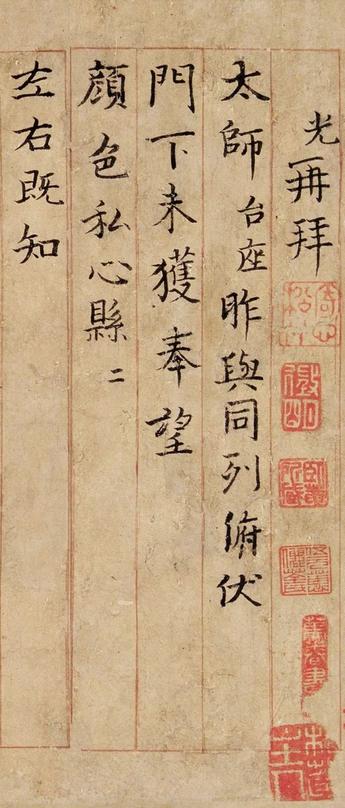 光再拜
太師台座昨與同列俯伏
門下未獲奉望
顔色私心縣〻
左右既知